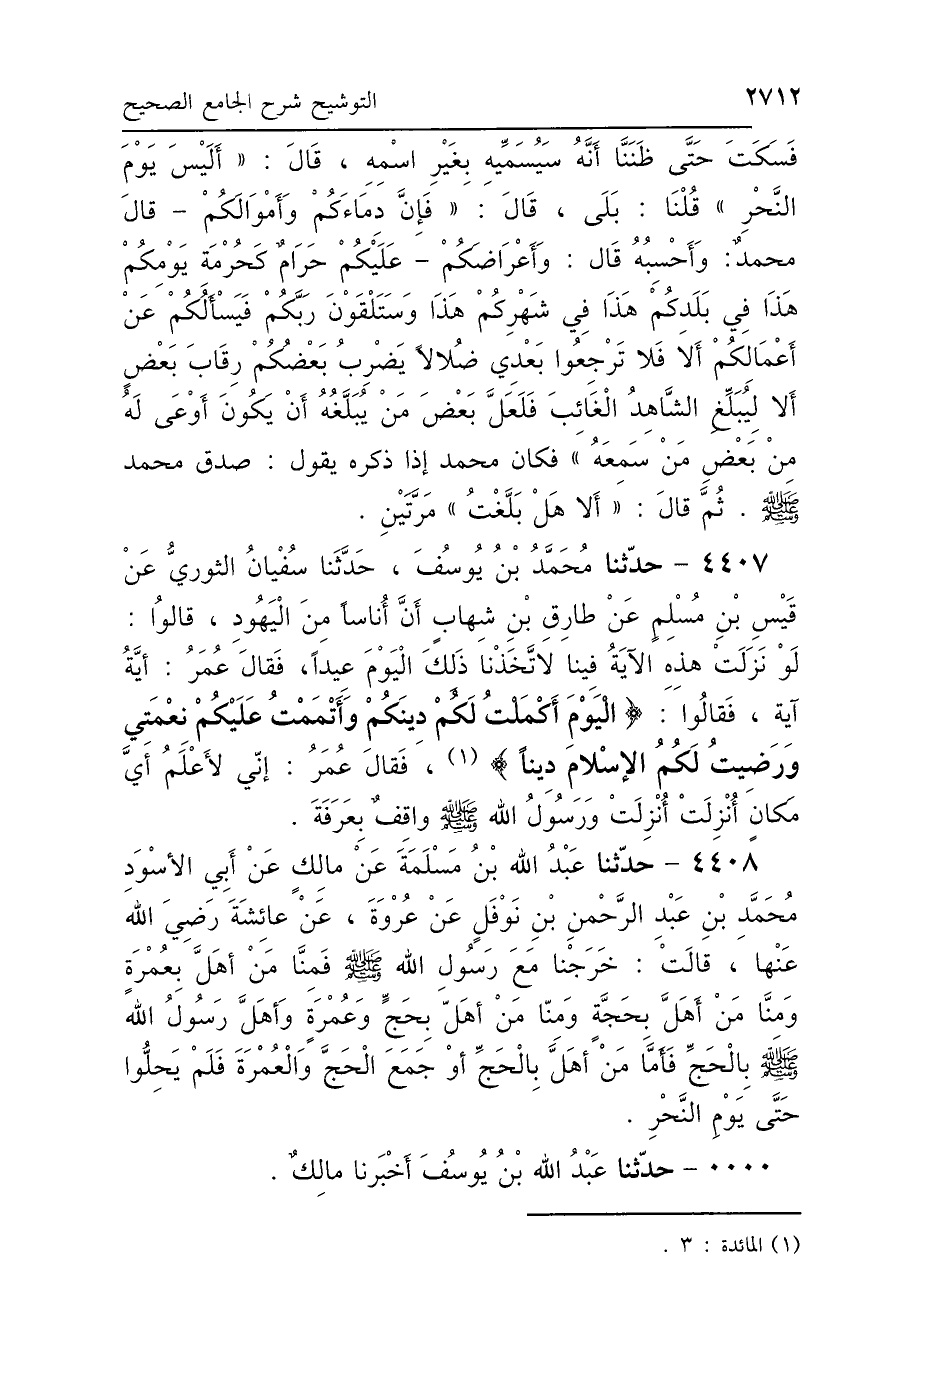 ٢٧١٢
التوشيح شرح الجامع الصحيح
فَسَكَتَ حَتَّى ظَنَنَّا أَنَّهُ سَيُسَمِّيهِ بِغَيْرِ اسْمِهِ ، قَالَ : « أَلَيْسَ يَوْمَ
النَّحْرِ » قُلْنَا : بَلَى ، قَالَ : « فَإِنَّ دِمَاءَكُمْ وَأَمْوَالَكُمْ – قال
محمدٌ: وَأَحْسِبُهُ قَال : وَأَعْرَاضَكُمْ – عَلَيْكُمْ حَرَامٌ كَحُرْمَةِ يَوْمِكُمْ
هَذَا فِي بَلَدِكُمْ هَذَا فِي شَهْرِكُمْ هَذَا وَسَتَلْقَوْنَ رَبَّكُمْ فَيَسْأَلُكُمْ عَنْ
أَعْمَالِكُمْ أَلا فَلا تَرْجِعُوا بَعْدِي ضُلالاً يَضْرِبُ بَعْضُكُمْ رِقَابَ بَعْضٍ
أَلا لِيُبَلِّغِ الشَّاهِدُ الْغَائِبَ فَلَعَلَّ بَعْضَ مَنْ يُبَلَّغُهُ أَنْ يَكُونَ أَوْعَى لَهُ
مِنْ بَعْضِ مَنْ سَمِعَهُ » فكان محمد إذا ذكره يقول : صدق محمد
ﷺ . ثُمَّ قَالَ : « أَلا هَلْ بَلَّغْتُ » مَرَّتَيْنِ .
٤٤٠٧ – حدّثنا مُحَمَّدُ بْنُ يُوسُفَ ، حَدَّثَنا سُفْيانُ الثوريُّ عَنْ
قَيْسِ بْنِ مُسْلِمٍ عَنْ طارِقِ بْنِ شِهابٍ أَنَّ أُناساً مِنَ الْيَهُودِ ، قالوُا :
لَوْ نَزَلَتْ هذِهِ الآيَةُ فينا لاتَّخَذْنا ذَلِكَ الْيَوْمَ عيداً، فَقالَ عُمَرُ : أيَّةُ
آية ، فَقالُوا : ﴿ الْيَوْمَ أَكْمَلْتُ لَكُمْ دِينَكُمْ وَأَتْمَمْتُ عَلَيْكُمْ نِعْمَتِي
وَرَضِيتُ لَكُمُ الإِسْلامَ دِيناً ﴾ (١) ، فَقالَ عُمَرُ : إنّي لأَعْلَمُ أَيَّ
مَكانٍ أُنْزِلَتْ أُنْزِلَتْ وَرَسُولُ الله ﷺ واقِفٌ بِعَرَفَةَ .
٤٤٠٨ – حدّثنا عَبْدُ الله بْنُ مَسْلَمَةَ عَنْ مالِكٍ عَنْ أَبي الأَسْوَدِ
مُحَمَّدِ بْنِ عَبْدِ الرَّحْمنِ بْنِ نَوْفَلٍ عَنْ عُرْوَةَ ، عَنْ عائِشَةَ رَضِيَ الله
عَنْها ، قالَتْ : خَرَجْنا مَعَ رَسُولِ الله ﷺ فَمِنَّا مَنْ أهَلَّ بِعُمْرَةٍ
وَمِنَّا مَنْ أَهَلَّ بِحَجَّةٍ وَمِنّا مَنْ أهَلّ بِحَجٍّ وَعُمْرَةٍ وَأهَلَّ رَسُولُ الله
ﷺ بِالْحَجِّ فَأَمَّا مَنْ أهَلَّ بِالْحَجِّ أوْ جَمَعَ الْحَجَّ وَالْعُمْرَةَ فَلَمْ يَحِلُّوا
حَتَّى يَوْمِ النَّحْرِ .
٠٠٠٠ – حدّثنا عَبْدُ الله بْنُ يُوسُفَ أَخْبَرنا مالِكٌ .
(١) المائدة : ٣ .